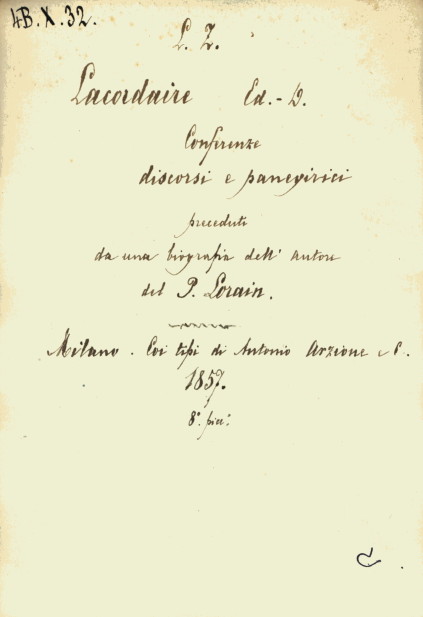 4B.X.32.
L. Z.
Lacordaire Ed.-D.
Conferenze
discorsi e panegirici
preceduti
da una biografia dell' autore
del P. Lorain.
Milano. Coi tipi di Antonio Arzione e C.
1857.
8.° picc.°